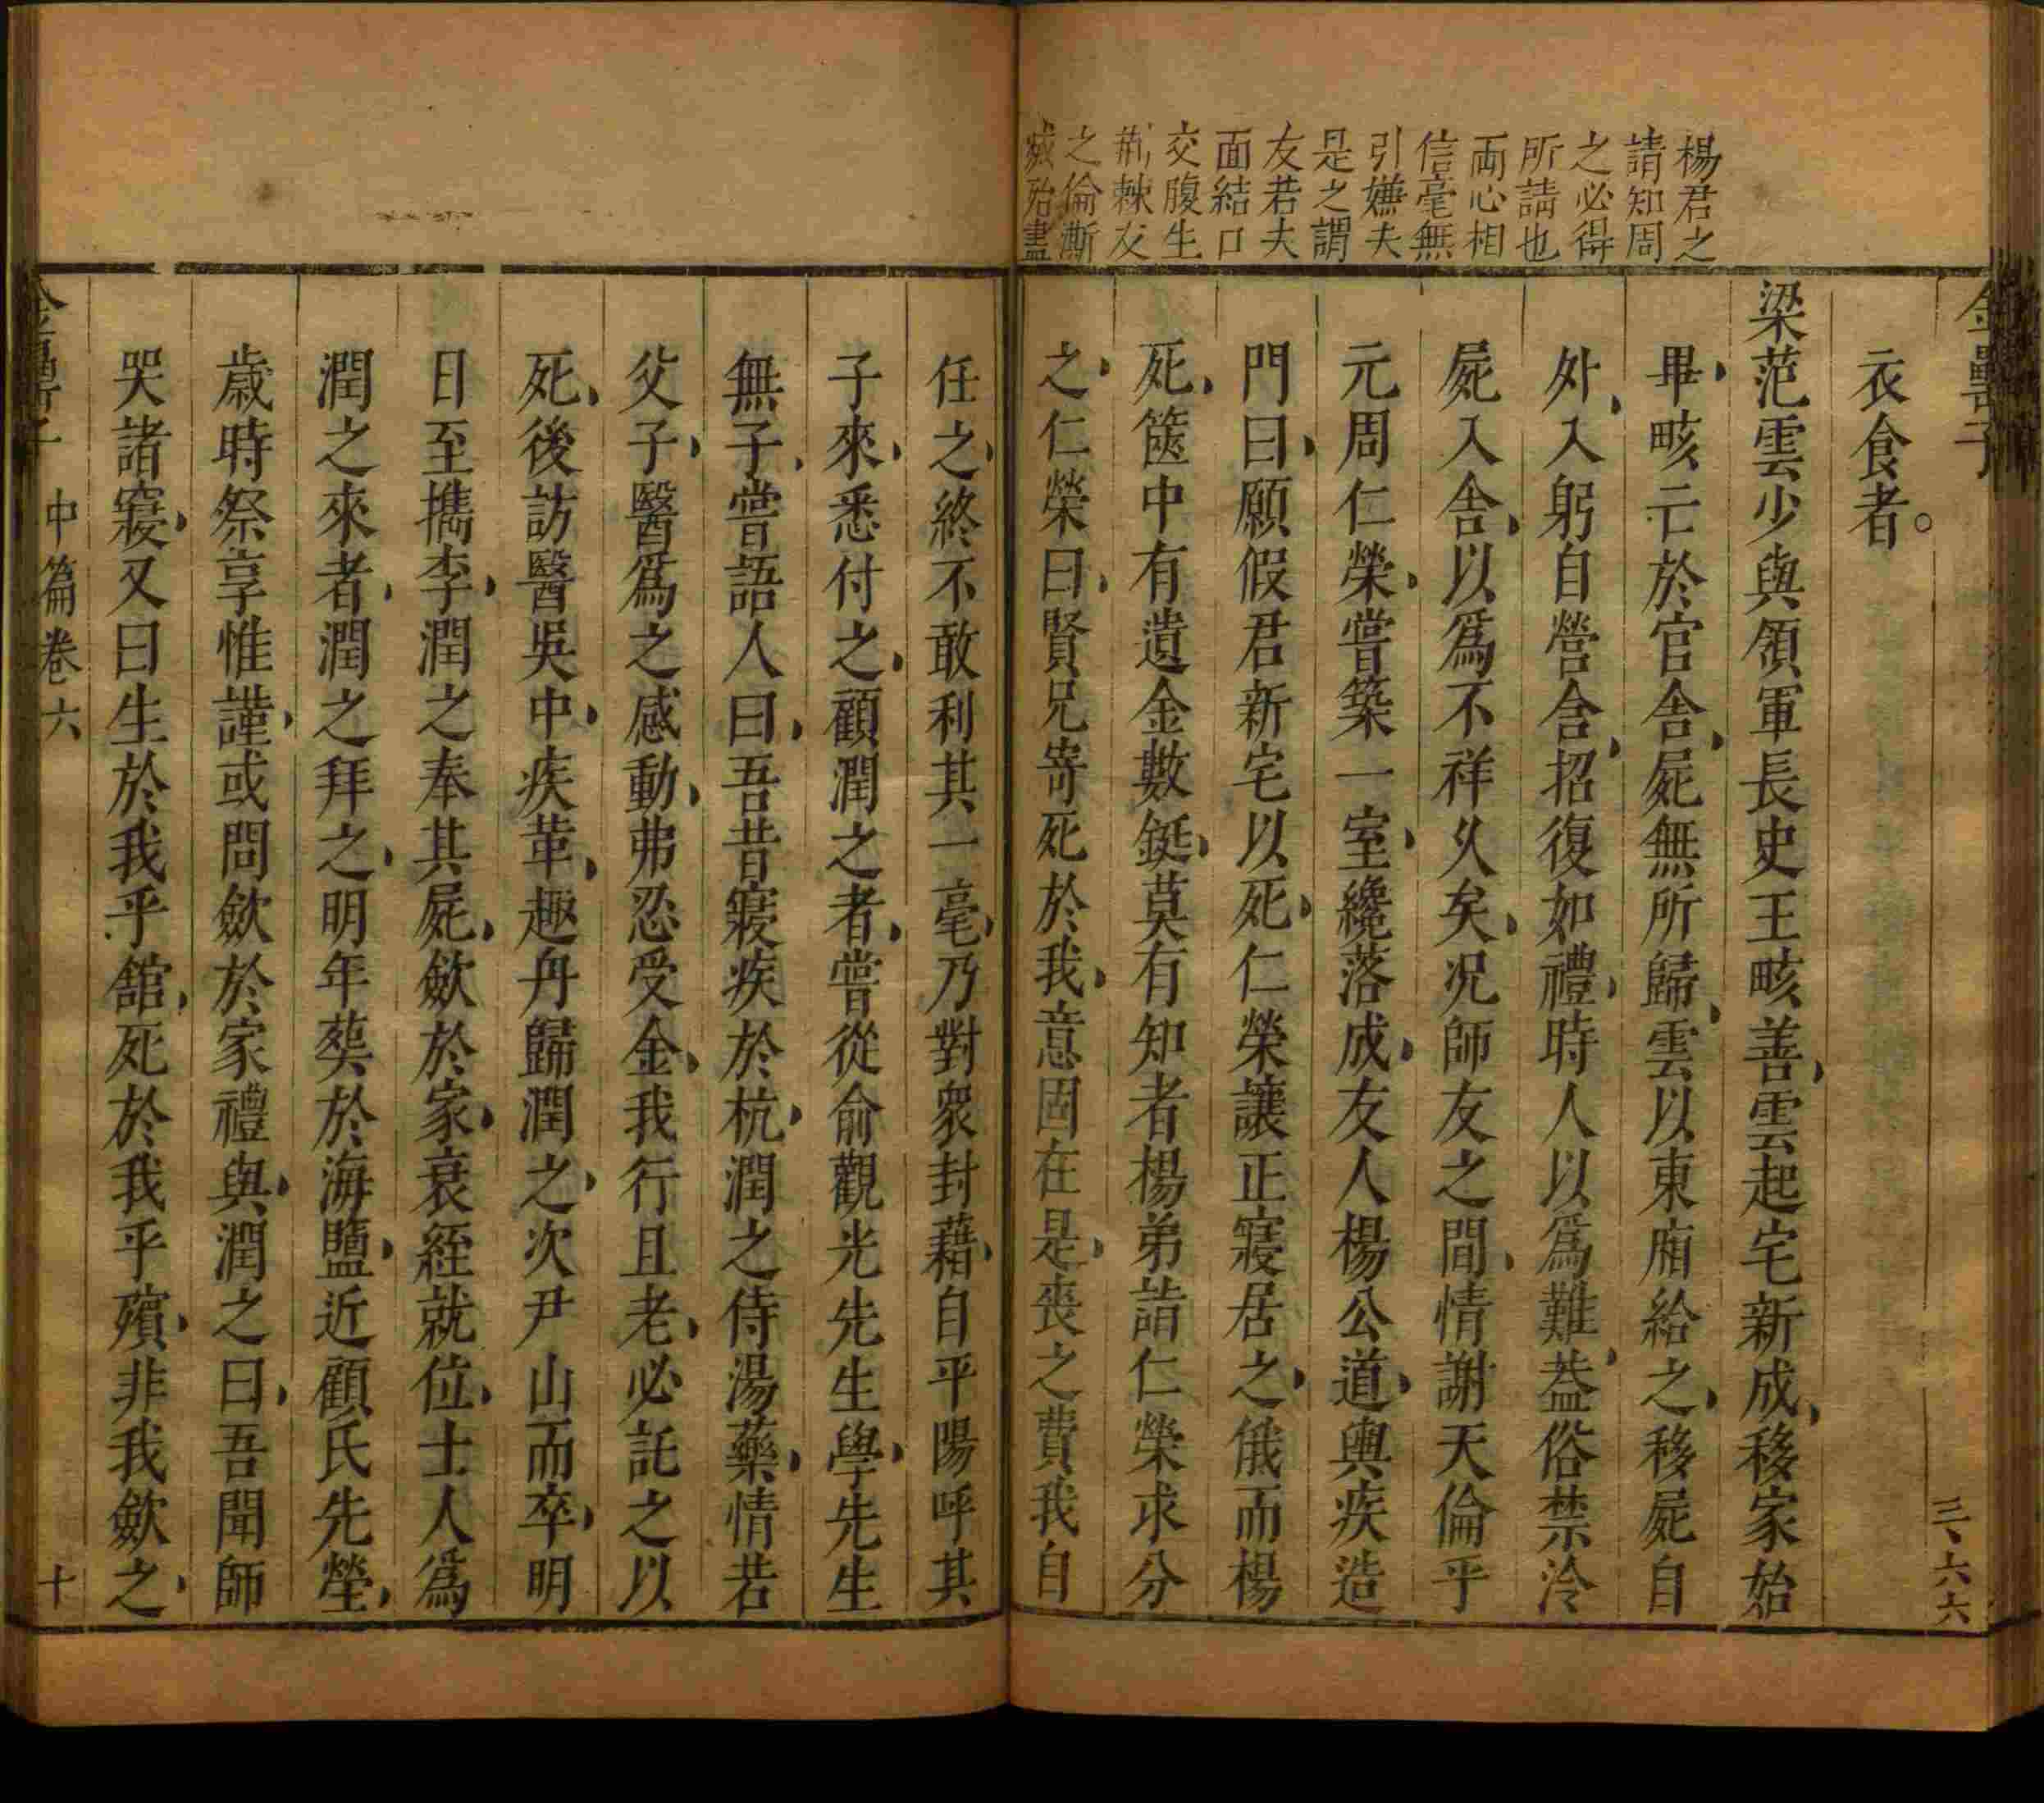 楊君之
請知周
之必得
所請也
両心相
信毫無
引嫌夫
是之謂
友若夫
面結口
交腹生
荊棘友
之倫漸
滅殆盡
金罍子
三、六六
衣食者。
梁范雲少與領軍長史王畡善雲起宅新成移家始
畢畡亡於官舍屍無所歸雲以東廂給之移屍自
外入躬自營含招復如禮時人以爲難葢俗禁泠
屍入舍以爲不祥乆矣况師友之間情謝天倫乎
元周仁榮嘗築一室纔落成友人楊公道輿疾造
門曰願假君新宅以死仁榮讓正寢居之俄而楊
死篋中有遺金數鋌莫有知者楊弟詣仁榮求分
之仁榮曰賢兄寄死於我意固在是喪之費我自
任之終不敢利其一毫乃對衆封藉自平陽呼其
子來悉付之顧潤之者嘗從俞觀光先生學先生
無子嘗語人曰吾昔寢疾於杭潤之侍湯藥情若
父子醫爲之感動弗忍受金我行且老必託之以
死後訪醫吳中疾革趣舟歸潤之次尹山而卒明
日至攜李潤之奉其屍歛於家衰絰就位士人爲
潤之來者潤之拜之明年塟於海鹽近顧氏先塋
歲時祭享惟謹或問歛於家禮與潤之曰吾聞師
哭諸寢又曰生於我乎舘死於我乎殯非我歛之
金罍子 中篇卷六 十